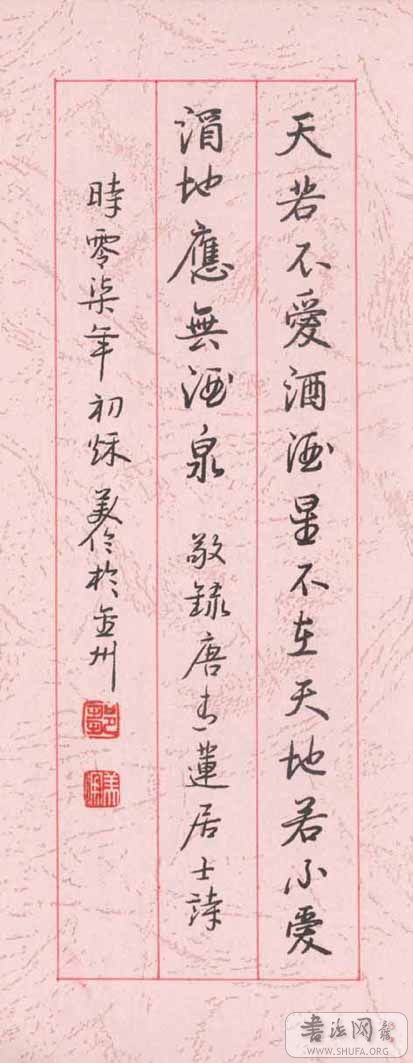 天若不愛酒酒星不在天地若不愛
涓地應無酒泉 敬錄唐青蓮居士詩
時零柒年初秌 美伶於金州
书法网
WWW.SHUFA.ORG